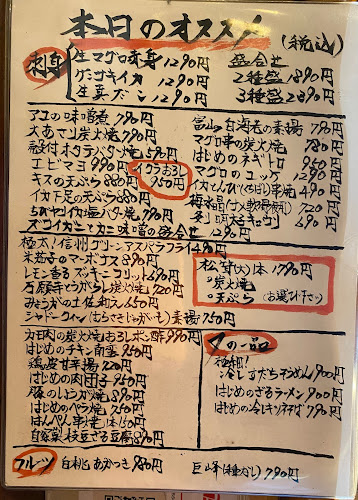 本日のオススメ
(税込)
刺身
生マグロ赤身 1290円
ケンサキイカ 1290円
生真ダコ 1290円
盛合せ
2種盛 1890円
3種盛 2890円
アユの味噌煮 790円
大あさり炭火焼 790円
殻付ホタテバター焼 590円
エビマヨ 990円
イクラおろし 950円
キスの天ぷら 880円
イカ下足の天ぷら 880円
ちびヤイカ塩バター焼 790円
ズワイカニとカニ味噌の盛合せ 1290円
富山白海老の素揚 790円
マグロ串の炭火焼 780円
はじめのネギトロ 950円
マグロのユッケ 1290円
いかとんび(くちばし)串焼 490円
梅水晶(サメ軟骨梅肘) 720円
690円
極太!信州グリーンアスパラフライ 490円
米茄子のマーボナス 890円
レモン香るズッキーニフリット 690円
万願寺とうがらし炭火焼 720円
みょうがの土佐和え 650円
シャドークイーン(むらさきじゃがいも)素揚 750円
松茸(大)1本 1790円
○炭火焼
○天ぷら (お選び下さい)
カモ肉の炭火焼おろしポン酢 990円
はじめのチキン南蛮 950円
鶏皮甘辛揚 720円
はじめの肉団子 750円
豚のしょうが焼 890円
はじめのペラ焼 750円
はんぺん串焼1本 150円
自家製枝豆ざる豆腐 890円
〆の一品
極細!
冷しすだちそうめん 900円
はじめのざるラーメン 900円
はじめの冷しキツネそば 790円
フルーツ
白桃 あかつき 880円
巨峰(種なし) 790円